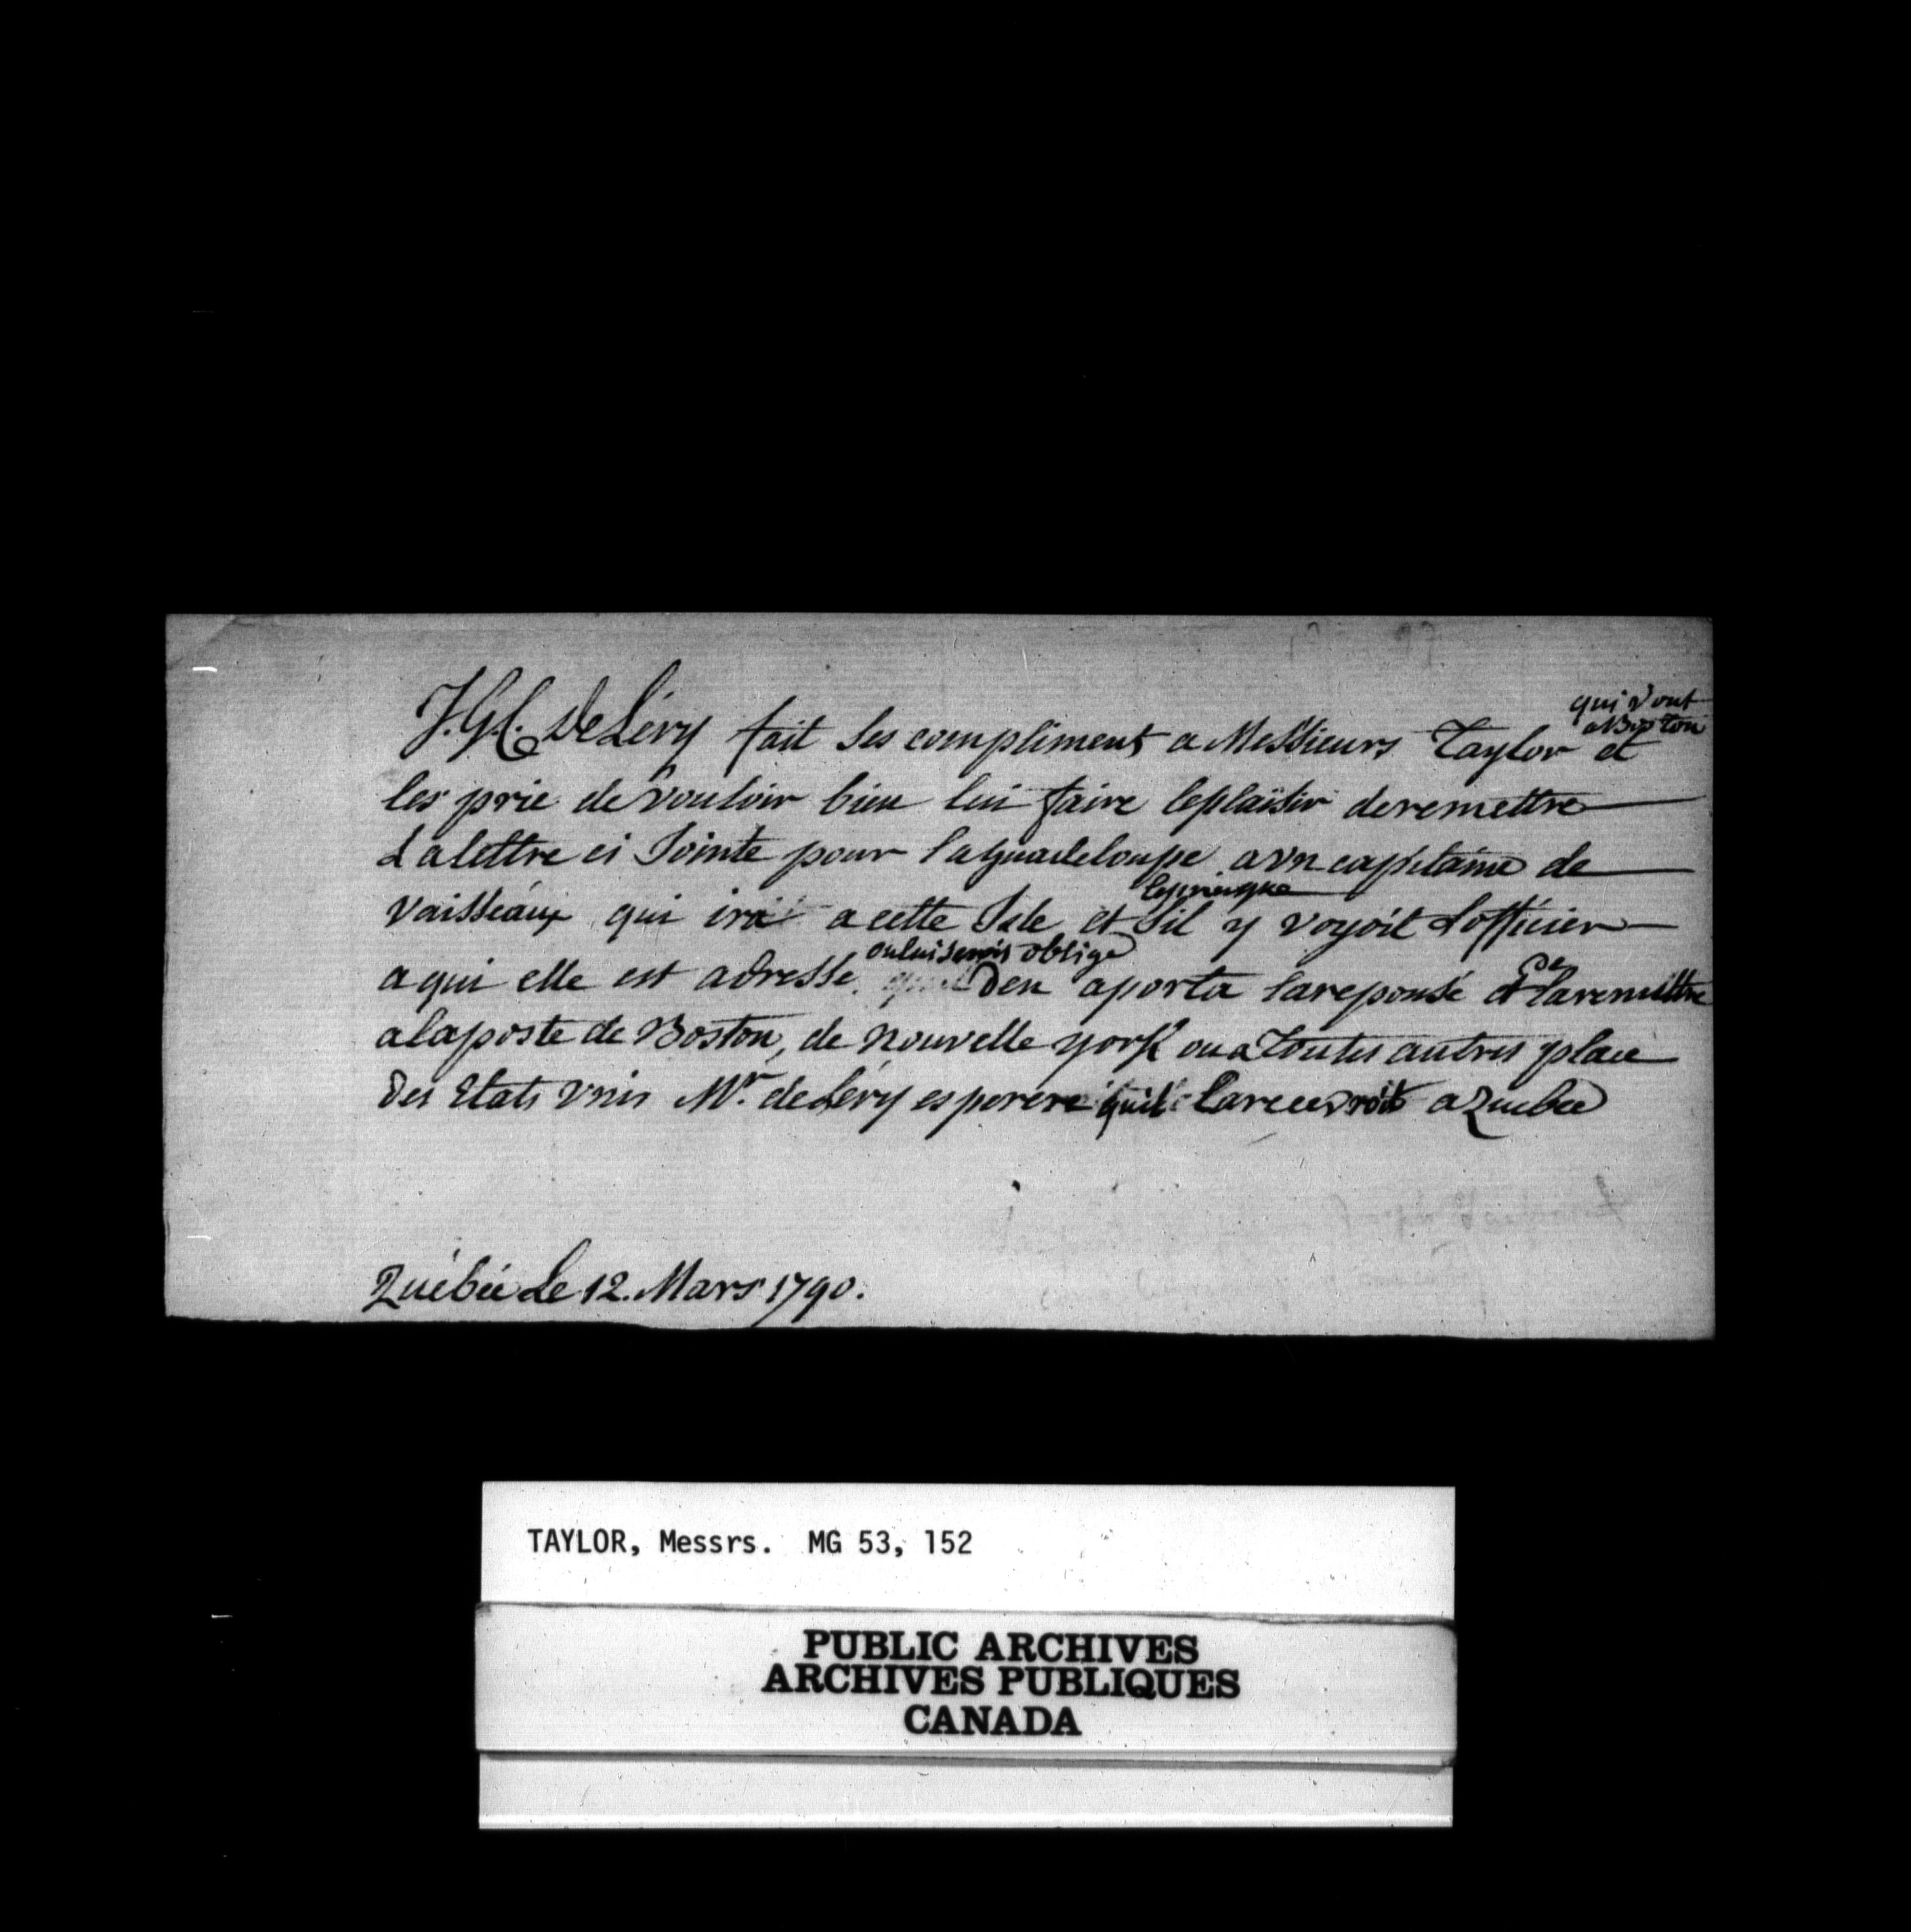 J.G.C. De Léry fait ses compliment a Messieurs Taylor qui vont a Boston et
les prie de vouloir bien lui faire leplaisir deremettre
Lalettre ci Jointe pour laguadeloupe a vn capitaine de
vaisseaux qui ira a cette Isle et leprier que sil y voyoit Lofficier
a qui elle est adresse. on lui serois obligé den aporta lareponse et de laremettre
a laposte de Boston, de nouvelle york ou a toutes autres place
des Etats vnis Mr. de Léry esperere quil larecevroit a Quebec
Québec Le 12. Mars 1790.
TAYLOR, Messrs. MG 53, 152
PUBLIC ARCHIVES
ARCHIVES PUBLIQUES
CANADA